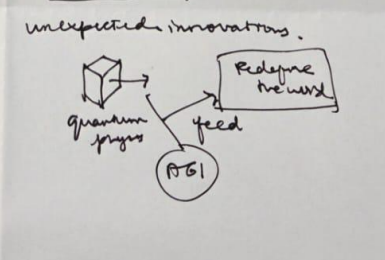 unexpected innovations.
Redefine
the world
quantum
physics
feed
AGI